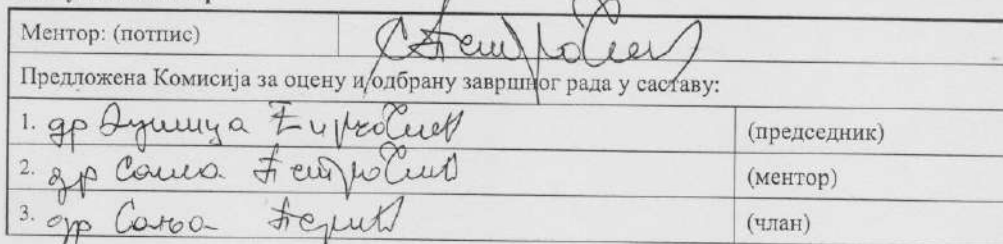 Ментор: (потпис) С Петровић
Предложена Комисија за оцену и одбрану завршног рада у саставу:
1. др Душица (председник)
2. др Саша Петровић (ментор)
3. др Сања Перић (члан)